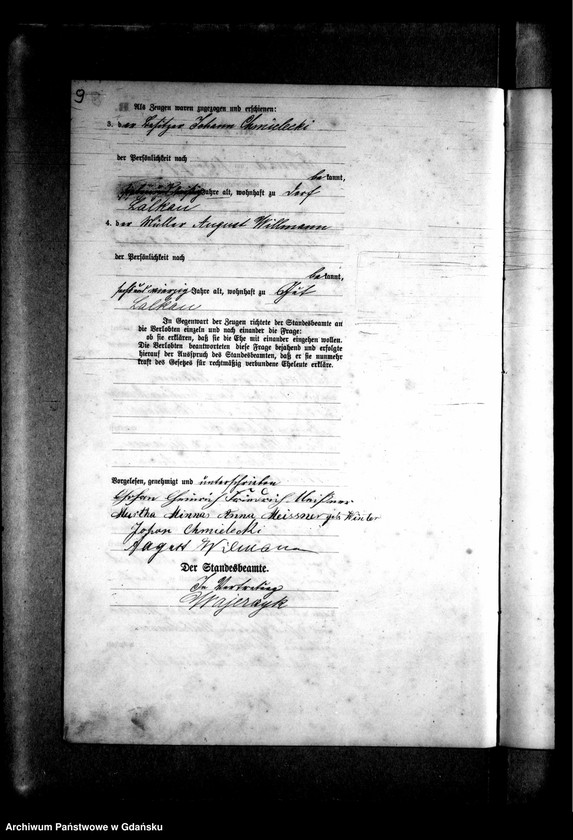 9
Als Zeugen waren zugezogen und erschienen:
3. der Besitzer Johann Chmielecki
der Persönlichkeit nach
bekannt,
Jahre alt, wohnhaft zu Dorf
Lalkau
4. der Müller August Willmann
der Persönlichkeit nach
bekannt,
sechsundvierzig Jahre alt, wohnhaft zu Gut
Lalkau
In Gegenwart der Zeugen richtete der Standesbeamte an
die Verlobten einzeln und nach einander die Frage:
ob sie erklären, daß sie die Ehe mit einander eingehen wollen.
Die Verlobten beantworteten diese Frage bejahend und erfolgte
hierauf der Ausspruch des Standesbeamten, daß er sie nunmehr
kraft des Gesetzes für rechtmäßig verbundene Eheleute erkläre.
Vorgelesen, genehmigt und unterschrieben
Johan Heinrich Friedrich Meißner
Martha Minna Anna Meissner geb. Winter
Johan Chmielecki
August Wilmann
Der Standesbeamte.
In Vertretung
Wajerzyk
Archiwum Państwowe w Gdańsku